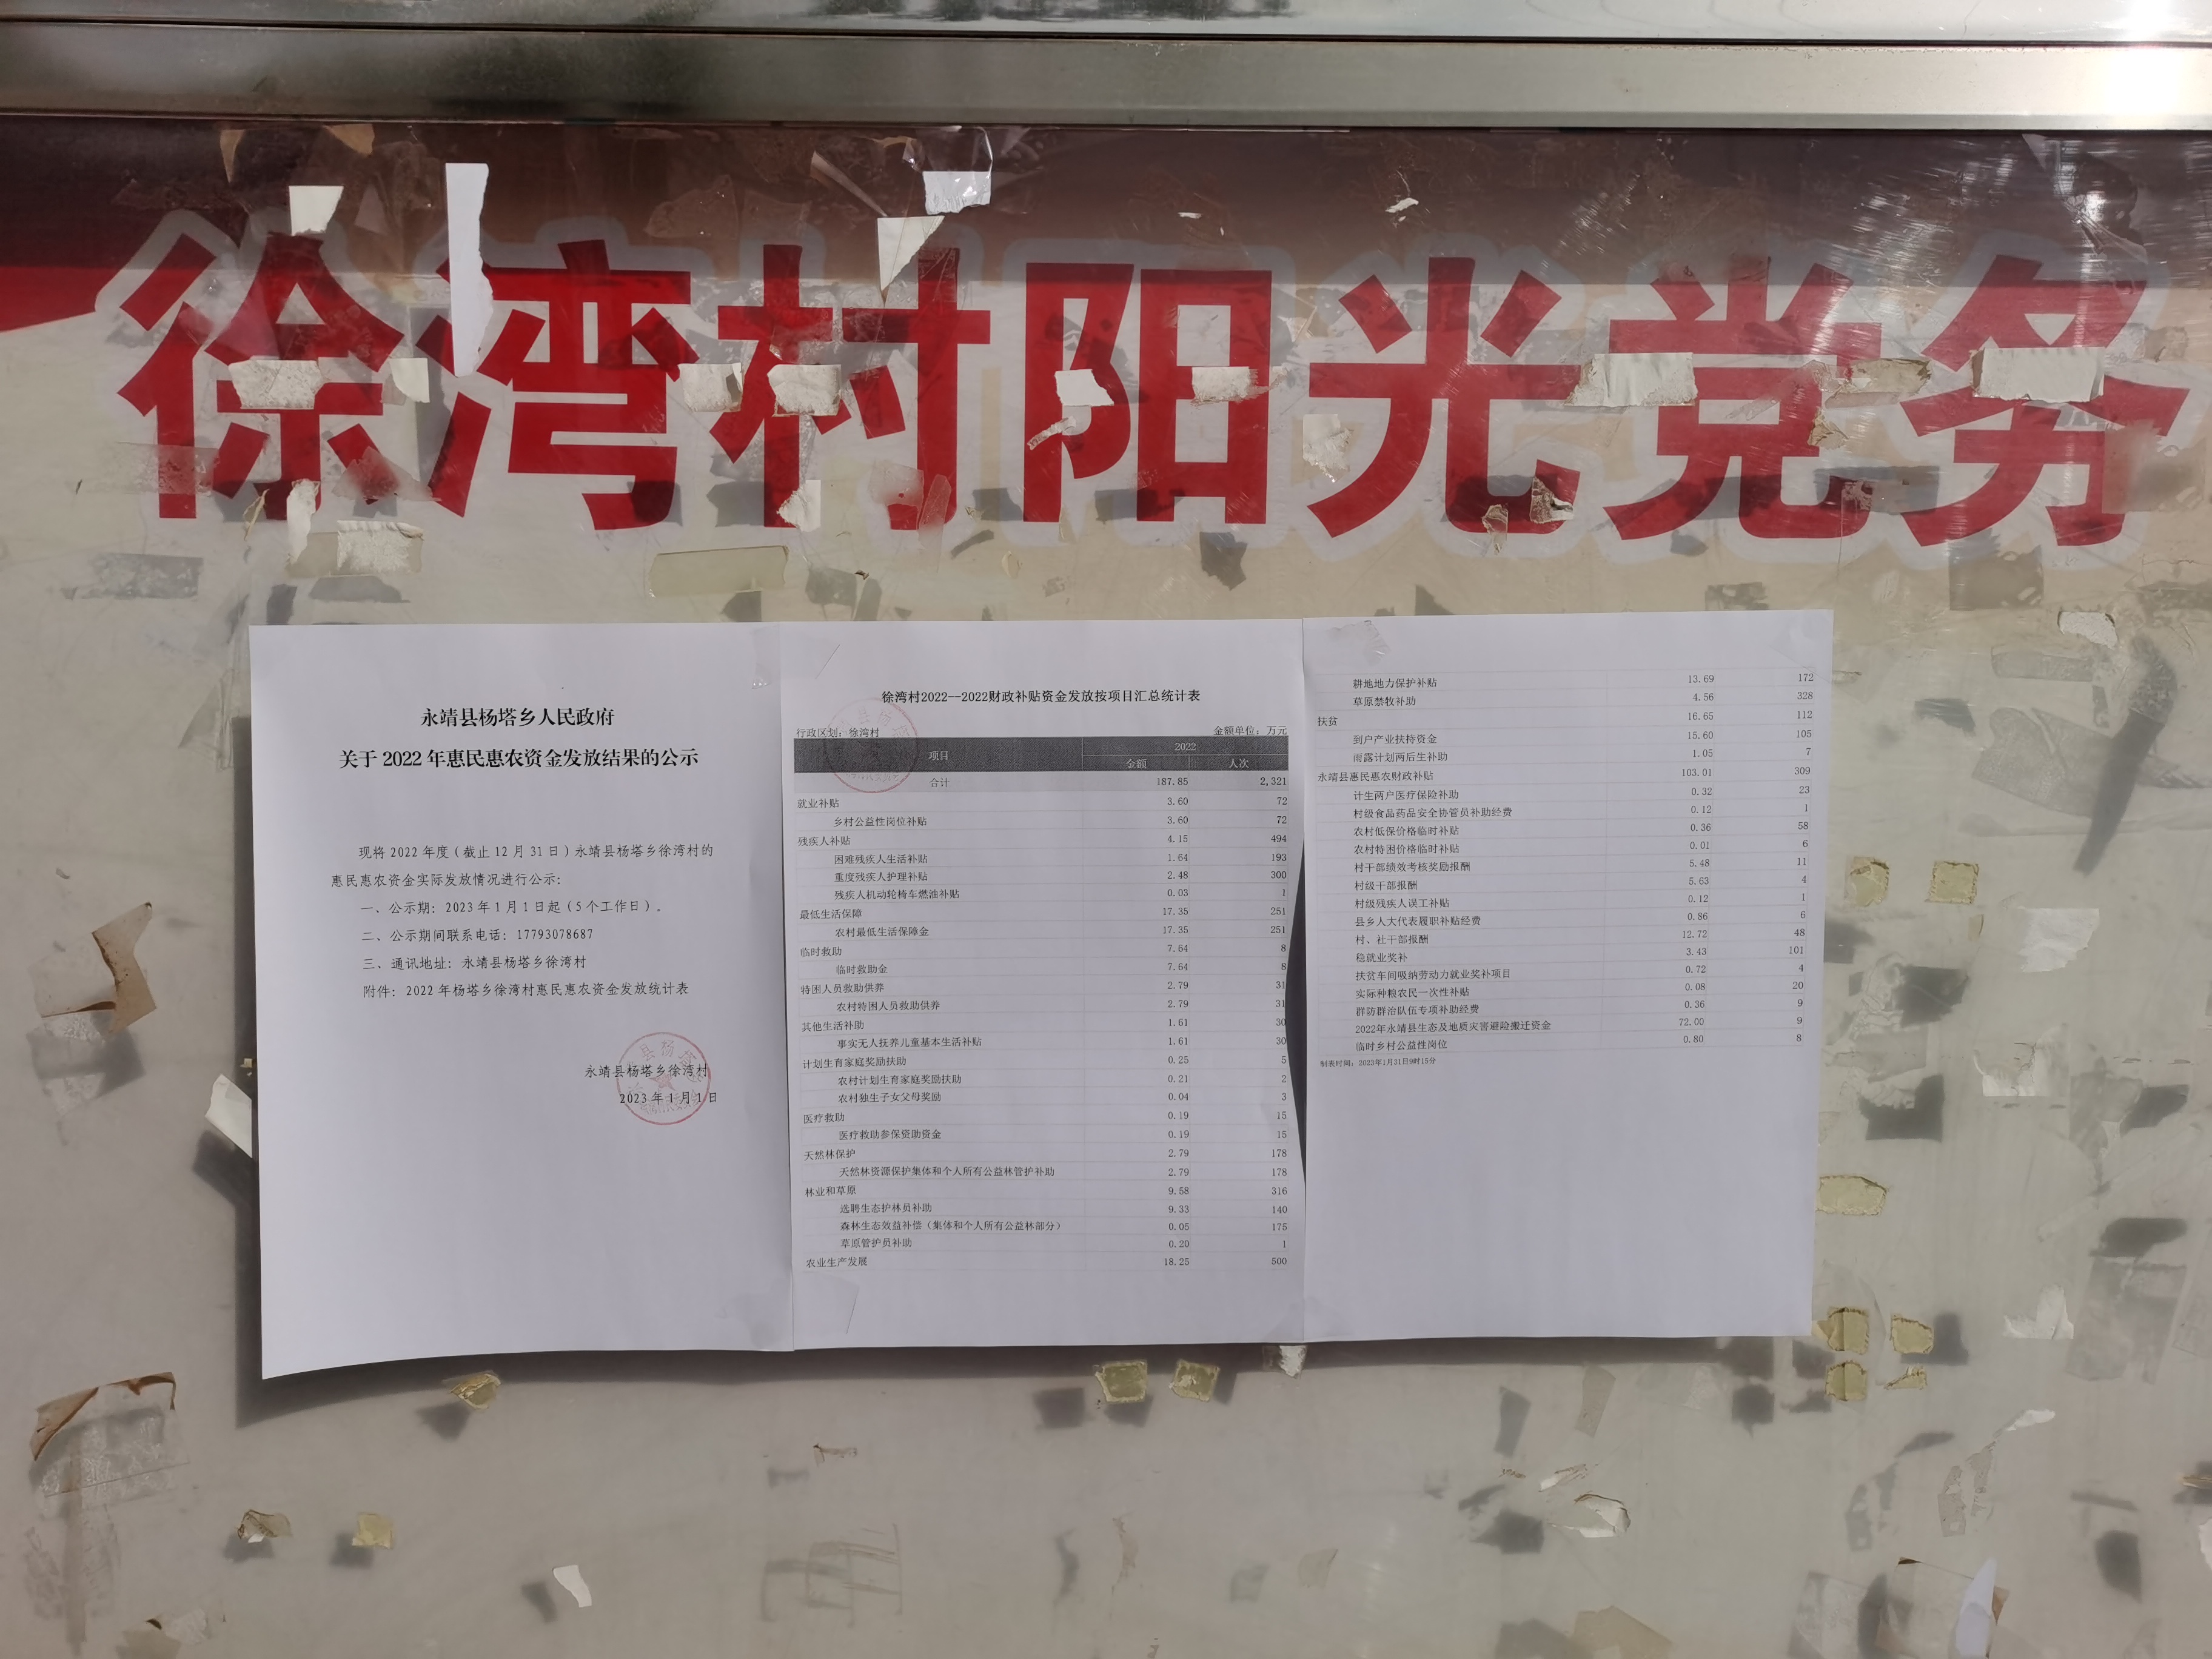 徐湾村阳光党务
永靖县杨塔乡人民政府
关于 2022 年惠民惠农资金发放结果的公示
现将 2022 年度（截止 12 月 31 日）永靖县杨塔乡徐湾村的
惠民惠农资金实际发放情况进行公示：
一、公示期：2023 年 1 月 1 日起（5 个工作日）。
二、公示期间联系电话：17793078687
三、通讯地址：永靖县杨塔乡徐湾村
附件：2022 年杨塔乡徐湾村惠民惠农资金发放统计表
永靖县杨塔乡徐湾村
2023 年 1 月 1 日
徐湾村2022--2022财政补贴资金发放按项目汇总统计表
行政区划：徐湾村 金额单位：万元
项目 2022
金额 人次
合计 187.85 2,321
就业补贴 3.60 72
乡村公益性岗位补贴 3.60 72
残疾人补贴 4.15 494
困难残疾人生活补贴 1.64 193
重度残疾人护理补贴 2.48 300
残疾人机动轮椅车燃油补贴 0.03 1
最低生活保障 17.35 251
农村最低生活保障金 17.35 251
临时救助 7.64 8
临时救助金 7.64 8
特困人员救助供养 2.79 31
农村特困人员救助供养 2.79 31
其他生活补助 1.61 30
事实无人抚养儿童基本生活补贴 1.61 30
计划生育家庭奖励扶助 0.25 5
农村计划生育家庭奖励扶助 0.21 2
农村独生子女父母奖励 0.04 3
医疗救助 0.19 15
医疗救助参保资助资金 0.19 15
天然林保护 2.79 178
天然林资源保护集体和个人所有公益林管护补助 2.79 178
林业和草原 9.58 316
选聘生态护林员补助 9.33 140
森林生态效益补偿（集体和个人所有公益林部分） 0.05 175
草原管护员补助 0.20 1
农业生产发展 18.25 500
耕地地力保护补贴 13.69 172
草原禁牧补助 4.56 328
扶贫 16.65 112
到户产业扶持资金 15.60 105
雨露计划两后生补助 1.05 7
永靖县惠民惠农财政补贴 103.01 309
计生两户医疗保险补助 0.32 23
村级食品药品安全协管员补助经费 0.12 1
农村低保价格临时补贴 0.36 58
农村特困价格临时补贴 0.01 6
村干部绩效考核奖励报酬 5.48 11
村级干部报酬 5.63 4
村级残疾人误工补贴 0.12 1
县乡人大代表履职补贴经费 0.86 6
村、社干部报酬 12.72 48
稳就业奖补 3.43 101
扶贫车间吸纳劳动力就业奖补项目 0.72 4
实际种粮农民一次性补贴 0.08 20
群防群治队伍专项补助经费 0.36 9
2022年永靖县生态及地质灾害避险搬迁资金 72.00 9
临时乡村公益性岗位 0.80 8
制表时间：2023年1月31日9时15分